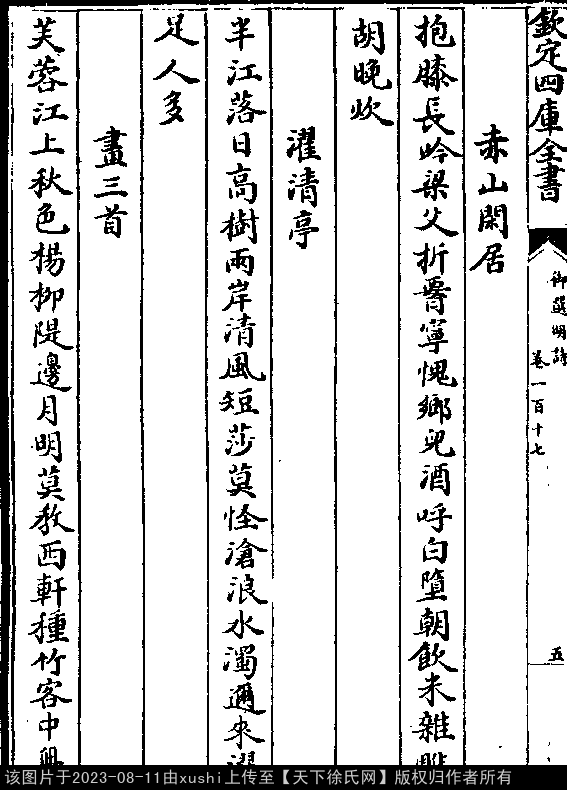 欽定四庫全書
御選明詩
卷一百十七
五
赤山閑居
抱膝長吟梁父折腰寧愧鄉兒酒呼白墮朝飲米雜
胡晚炊
濯清亭
半江落日高樹兩岸清風短莎莫怪滄浪水濁邇來濯
足人多
畫三首
芙蓉江上秋色楊柳隄邊月明莫教西軒種竹客中
该图片于2023-08-11由xushi上传至【天下徐氏网】版权归作者所有